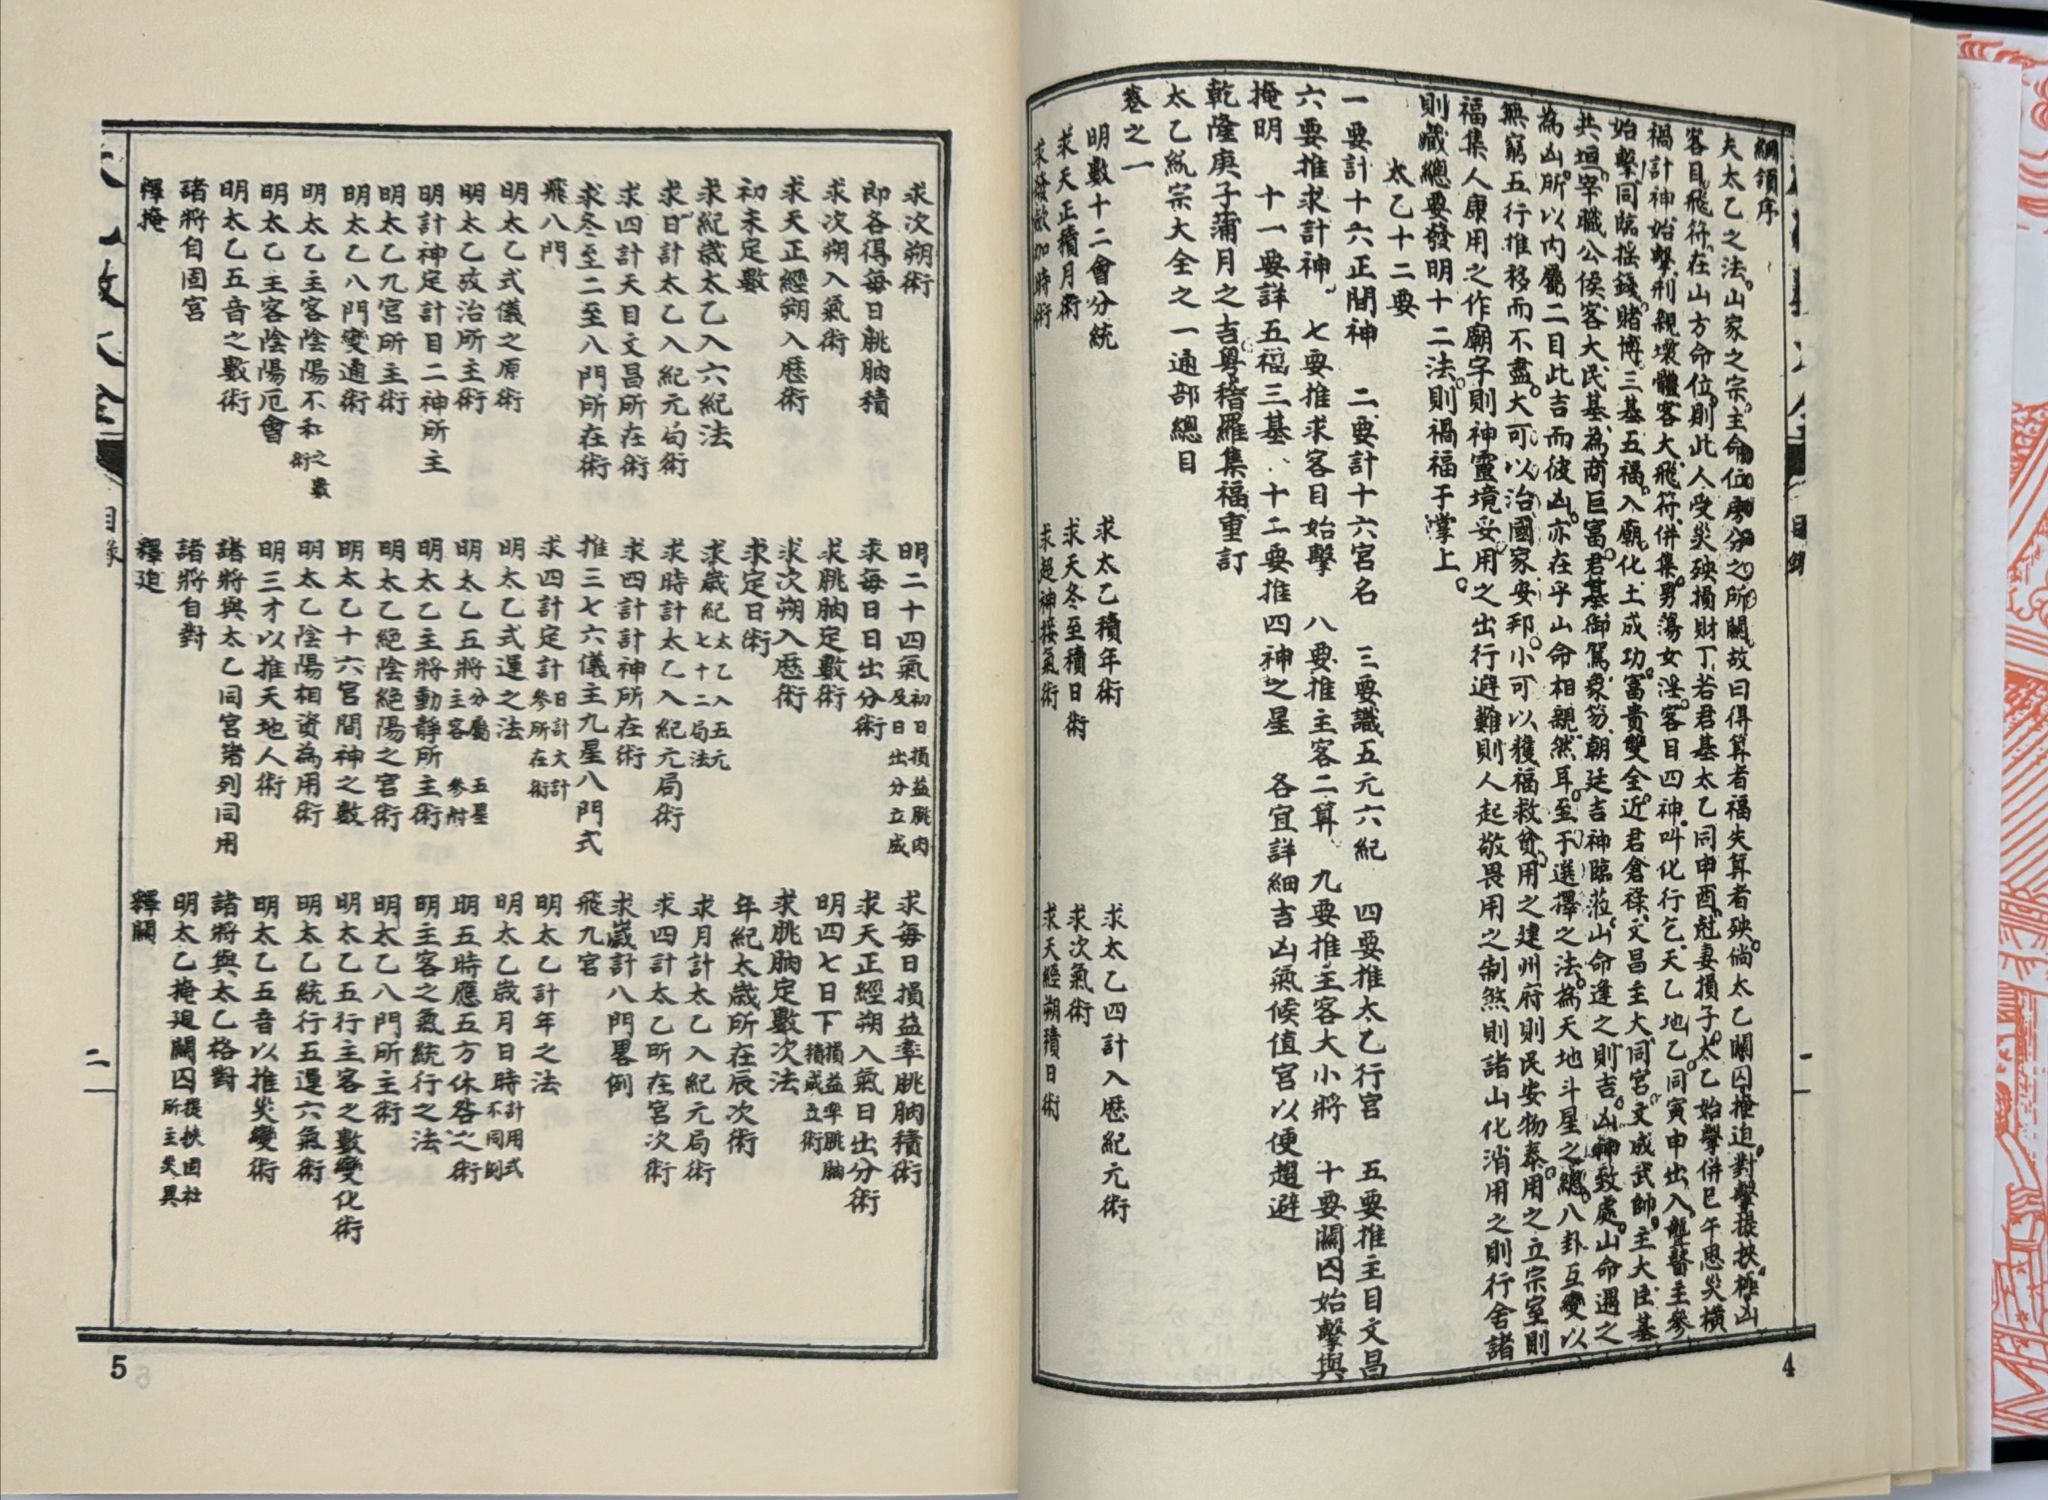 綱領序
夫太乙之法山家之宗主命位房分之所關故曰得算者福失算者殃倘太乙關囚掩迫對擊提挾極凶
客目飛符在山方命位則此人受災殃損財丁若君基太乙同申酉尅妻損子太乙始擊併巳午患災橫
禍計神始擊刑親壞體客大飛符併集男蕩女淫客目四神叫化行乞天乙地乙同寅申出入聾瞽主參
始擊同臨搖錢賭博三基五福入廟化土成功富貴雙全近君倉祿文昌主大同宮文成武帥主大臣基
共垣宰職公侯客大民基為商巨富君基御駕象笏朝廷吉神臨蒞山命逢之則吉凶神致處山命遇之
為凶所以內屬二目此吉而彼凶亦在乎山命相親然耳至于選擇之法為天地斗星之總八卦互變以
無窮五行推移而不盡大可以治國家安邦小可以獲福救貧用之建州府則民安物泰用之立宗室則
福集人康用之作廟宇則神靈境妥用之出行避難則人起敬畏用之制煞則諸山化消用之則行舍諸
則藏總要發明十二法則禍福于掌上
太乙十二要
一要計十六正間神　二要計十六宮名　三要識五元六紀　四要推太乙行宮　五要推主目文昌
六要推求計神　七要推求客目始擊　八要推主客二算　九要推主客大小將　十要關囚始擊與
掩明　十一要詳五福三基　十二要推四神之星　各宜詳細吉凶氣候值宮以便趨避
乾隆庚子蒲月之吉粵稽羅集福重訂
太乙統宗大全之一通部總目
卷之一
明數十二會分統　求太乙積年術　求太乙四計入歷紀元術
求天正積月術　求天冬至積日術　求次氣術
求發歛加時術　求超神接氣術　求天經朔積日術
4
求次朔術　明二十四氣初日損益朓肭及日出分立成　求每日損益率朓肭積術
即各得每日朓肭積　求每日日出分術　求天正經朔入氣日出分術
求次朔入氣術　求朓肭定數術　明四七日下損益率朓肭積成立術
求天正經朔入歷術　求次朔入歷術　求朓肭定數次法
初末定數　求定日術　年紀太歲所在辰次術
求紀歲太乙入六紀法　求歲紀太乙入五元七十二局法　求月計太乙入紀元局術
求日計太乙入紀元局術　求時計太乙入紀元局術　求四計太乙所在宮次術
求四計天目文昌所在術　求四計計神所在術　求歲計八門畧例
求冬至二至八門所在術　推三七六儀主九星八門式　飛九宮
飛八門　求四計定計日計大計參所在術　明太乙計年之法
明太乙式儀之原術　明太乙式運之法　明太乙歲月日時計用式不同例
明太乙攷治所主術　明太乙五將分屬五星主客參附　明五時應五方休咎之術
明計神定計目二神所主　明太乙主將動靜所主術　明主客之氣統行之法
明太乙九宮所主術　明太乙絕陰絕陽之宮術　明太乙八門所主術
明太乙八門變通術　明太乙十六宮間神之數　明太乙五行主客之數變化術
明太乙主客陰陽不和之數術　明太乙陰陽相資為用術　明太乙統行五運六氣術
明太乙主客陰陽厄會　明三才以推天地人術　明太乙五音以推災變術
明太乙五音之數術　諸將與太乙同宮者列同用　諸將與太乙格對
諸將自囚宮　諸將自對　明太乙掩廹關囚提挾囚杜所主災異
釋掩　釋迫　釋關
目錄
二
5